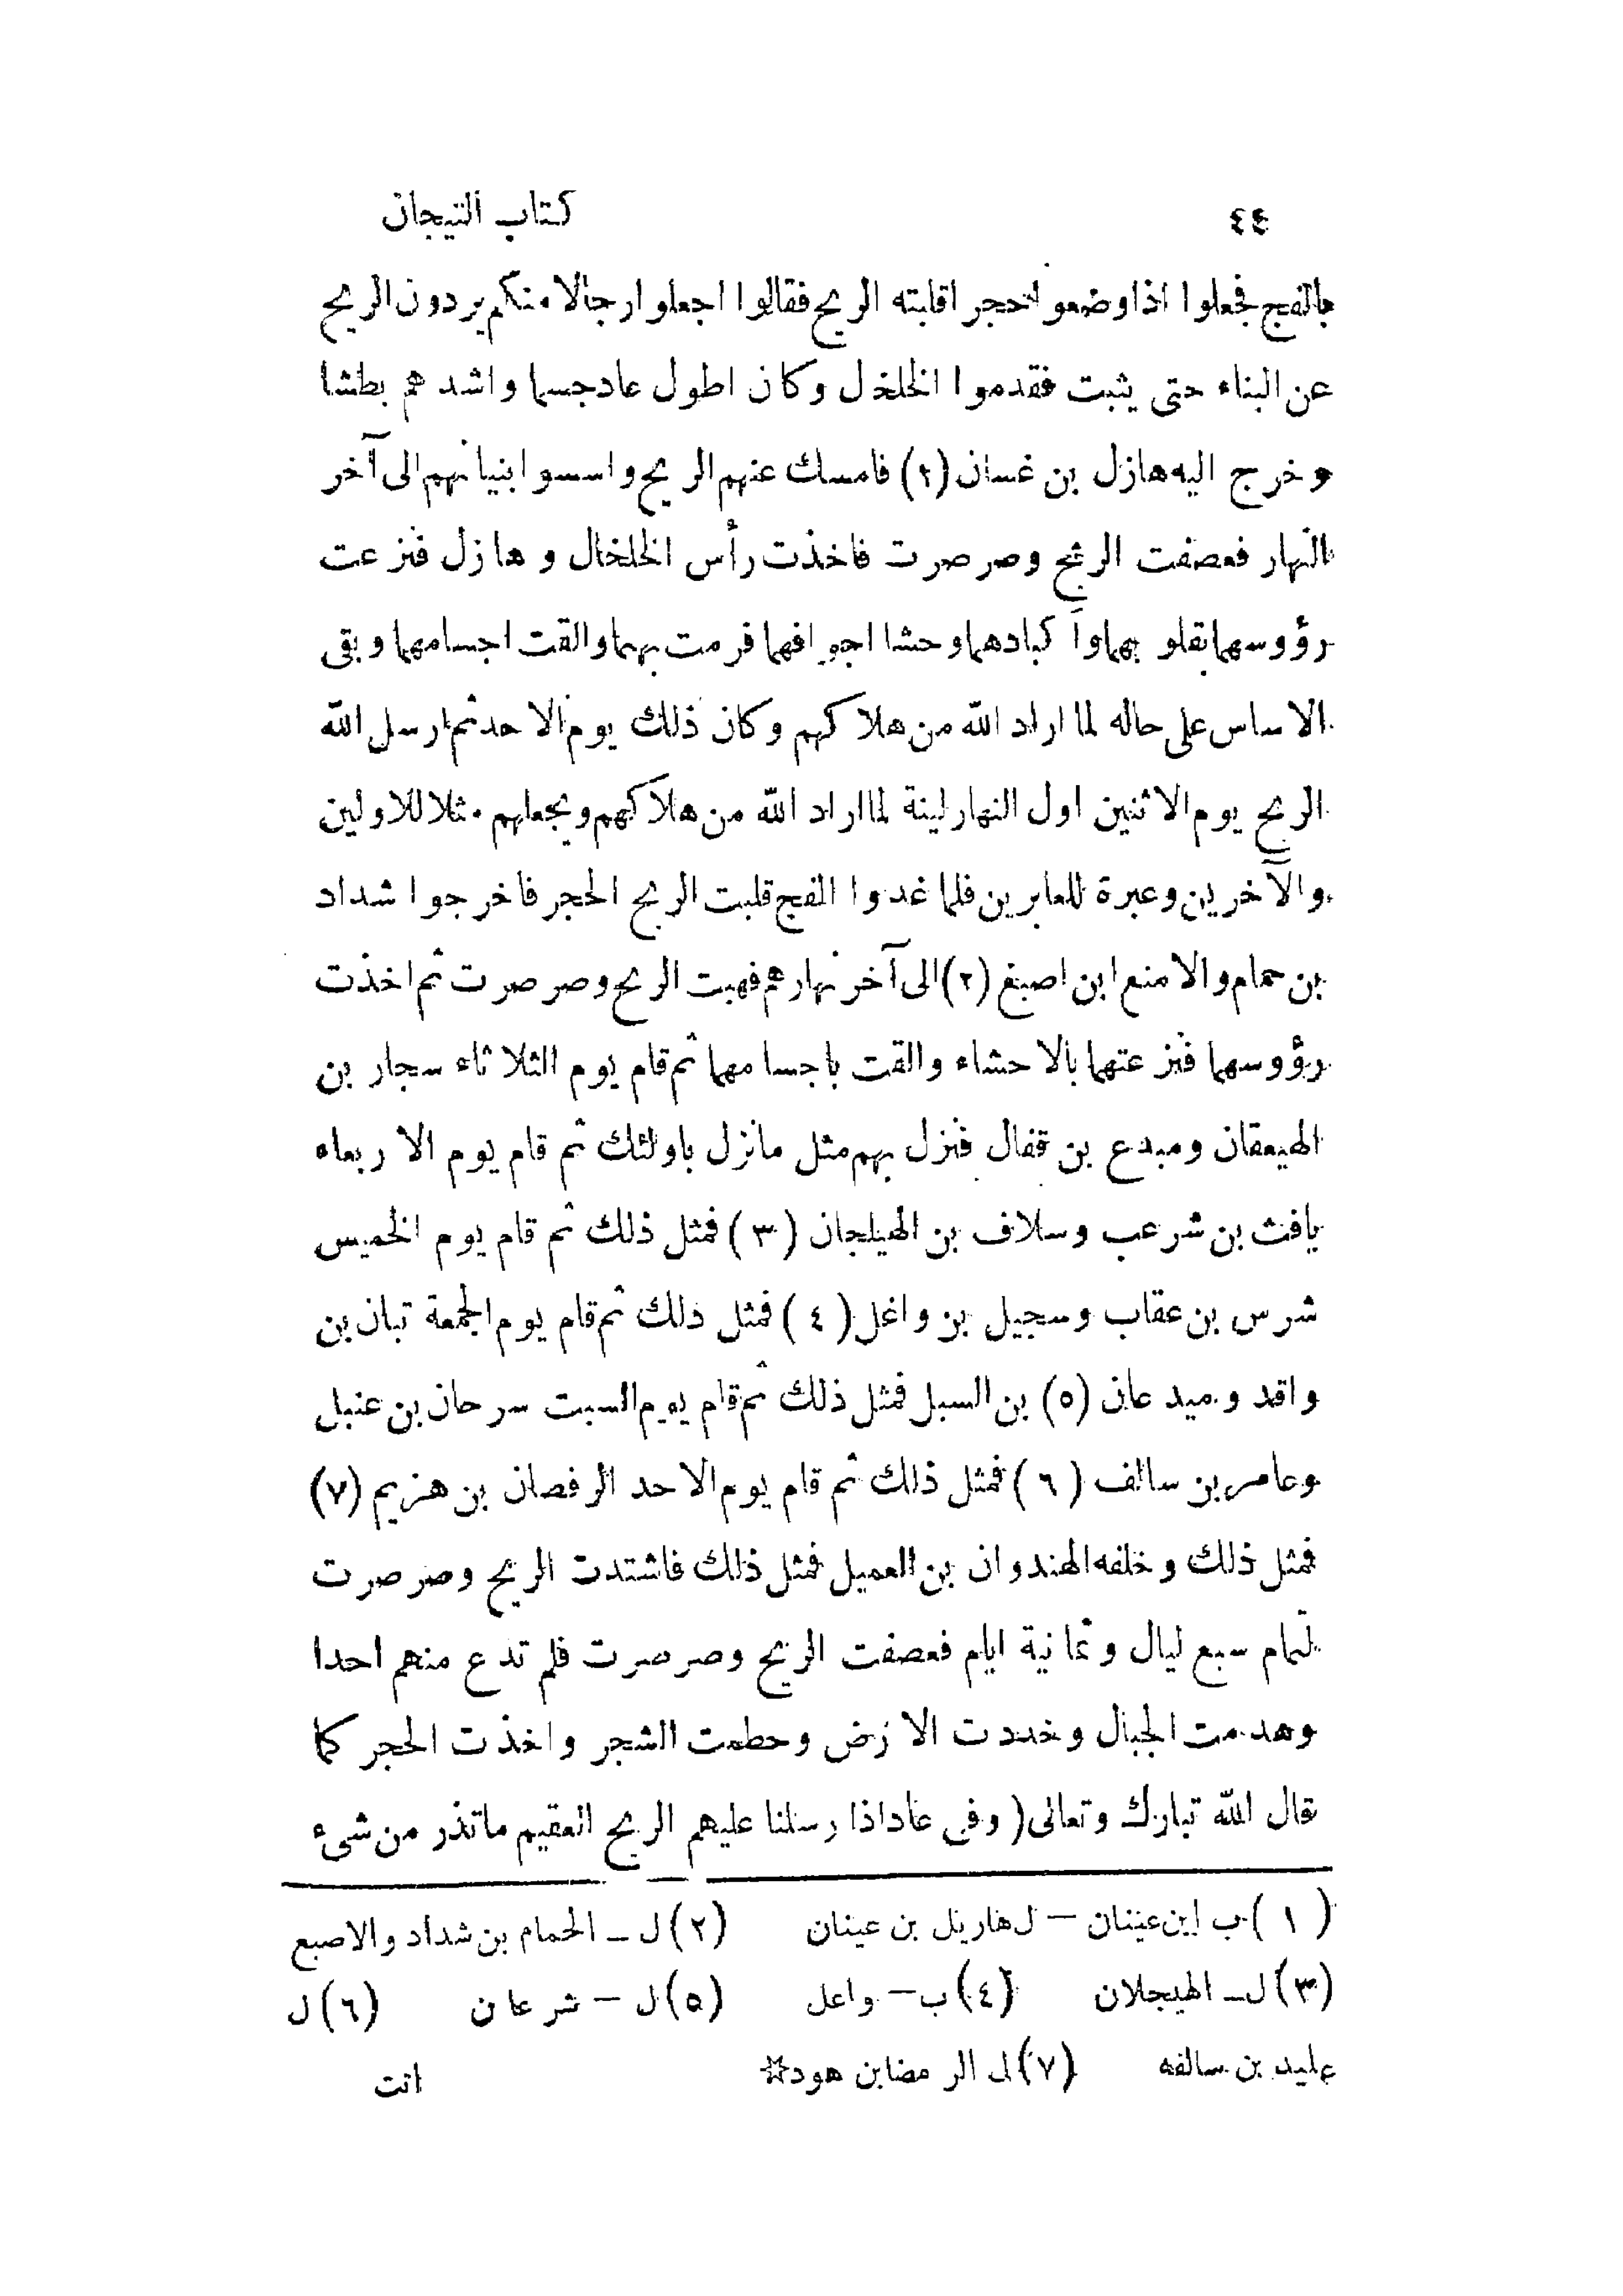 ٤٤ كتاب التيجان
بالفج فجعلوا اذا وضعوا حجرا قلبته الريح فقالوا اجعلوا رجالا منكم يردون الريح
عن البناء حتى يثبت فقدموا الخلخل وكان اطول عاد جسما واشدهم بطشا
وخرج اليه هازل بن غسان (١) فامسك عنهم الريح واسسوا بنيانهم الى آخر
النهار فعصفت الريح وصرصرت فاخذت رأس الخلخال وهازل فنزعت
رؤوسهما بقلوبهما وأكبادهما وحشا اجوافهما فرمت بهما والقت اجسامهما وبقى
الاساس على حاله لما اراد الله من هلاكهم وكان ذلك يوم الاحد ثم ارسل الله
الريح يوم الاثنين اول النهار لينة لما اراد الله من هلاكهم ويجعلهم مثلا للاولين
والآخرين وعبرة للعابرين فلما غدوا الفج قلبت الريح الحجر فاخرجوا شداد
بن حمام والامنع ابن اصبغ (٢) الى آخر نهارهم فهبت الريح وصرصرت ثم اخذت
رؤوسهما فنزعتهما بالاحشاء والقت باجسامهما ثم قام يوم الثلاثاء سجار بن
الهيعقان ومبدع بن قفال فنزل بهم مثل مانزل باولئك ثم قام يوم الاربعاء
يافث بن شرعب وسلاف بن الهيلجان (٣) فمثل ذلك ثم قام يوم الخميس
شرس بن عقاب وسجيل بن واغل (٤) فمثل ذلك ثم قام يوم الجمعة تبان بن
واقد وميدعان (٥) بن السبل فمثل ذلك ثم قام يوم السبت سرحان بن عنبل
وعامر بن سالف (٦) فمثل ذلك ثم قام يوم الاحد الرفصان بن هزيم (٧)
فمثل ذلك وخلفه الهندوان بن العميل فمثل ذلك فاشتدت الريح وصرصرت
لتمام سبع ليال وثمانية ايام فعصفت الريح وصرصرت فلم تدع منهم احدا
وهدمت الجبال وخددت الارض وحطمت الشجر واخذت الحجر كما
قال الله تبارك وتعالى (وفى عاد اذ ارسلنا عليهم الريح العقيم ماتذر من شىء
(١) ب ابن عينان — ل هاريل بن عينان (٢) ل — الحمام بن شداد والاصبع
(٣) ل — الهيجلان (٤) ب — واعل (٥) ل — شرعان (٦) ل
عليد بن سالفه (٧) ل الرمضا بن هود☆ انت